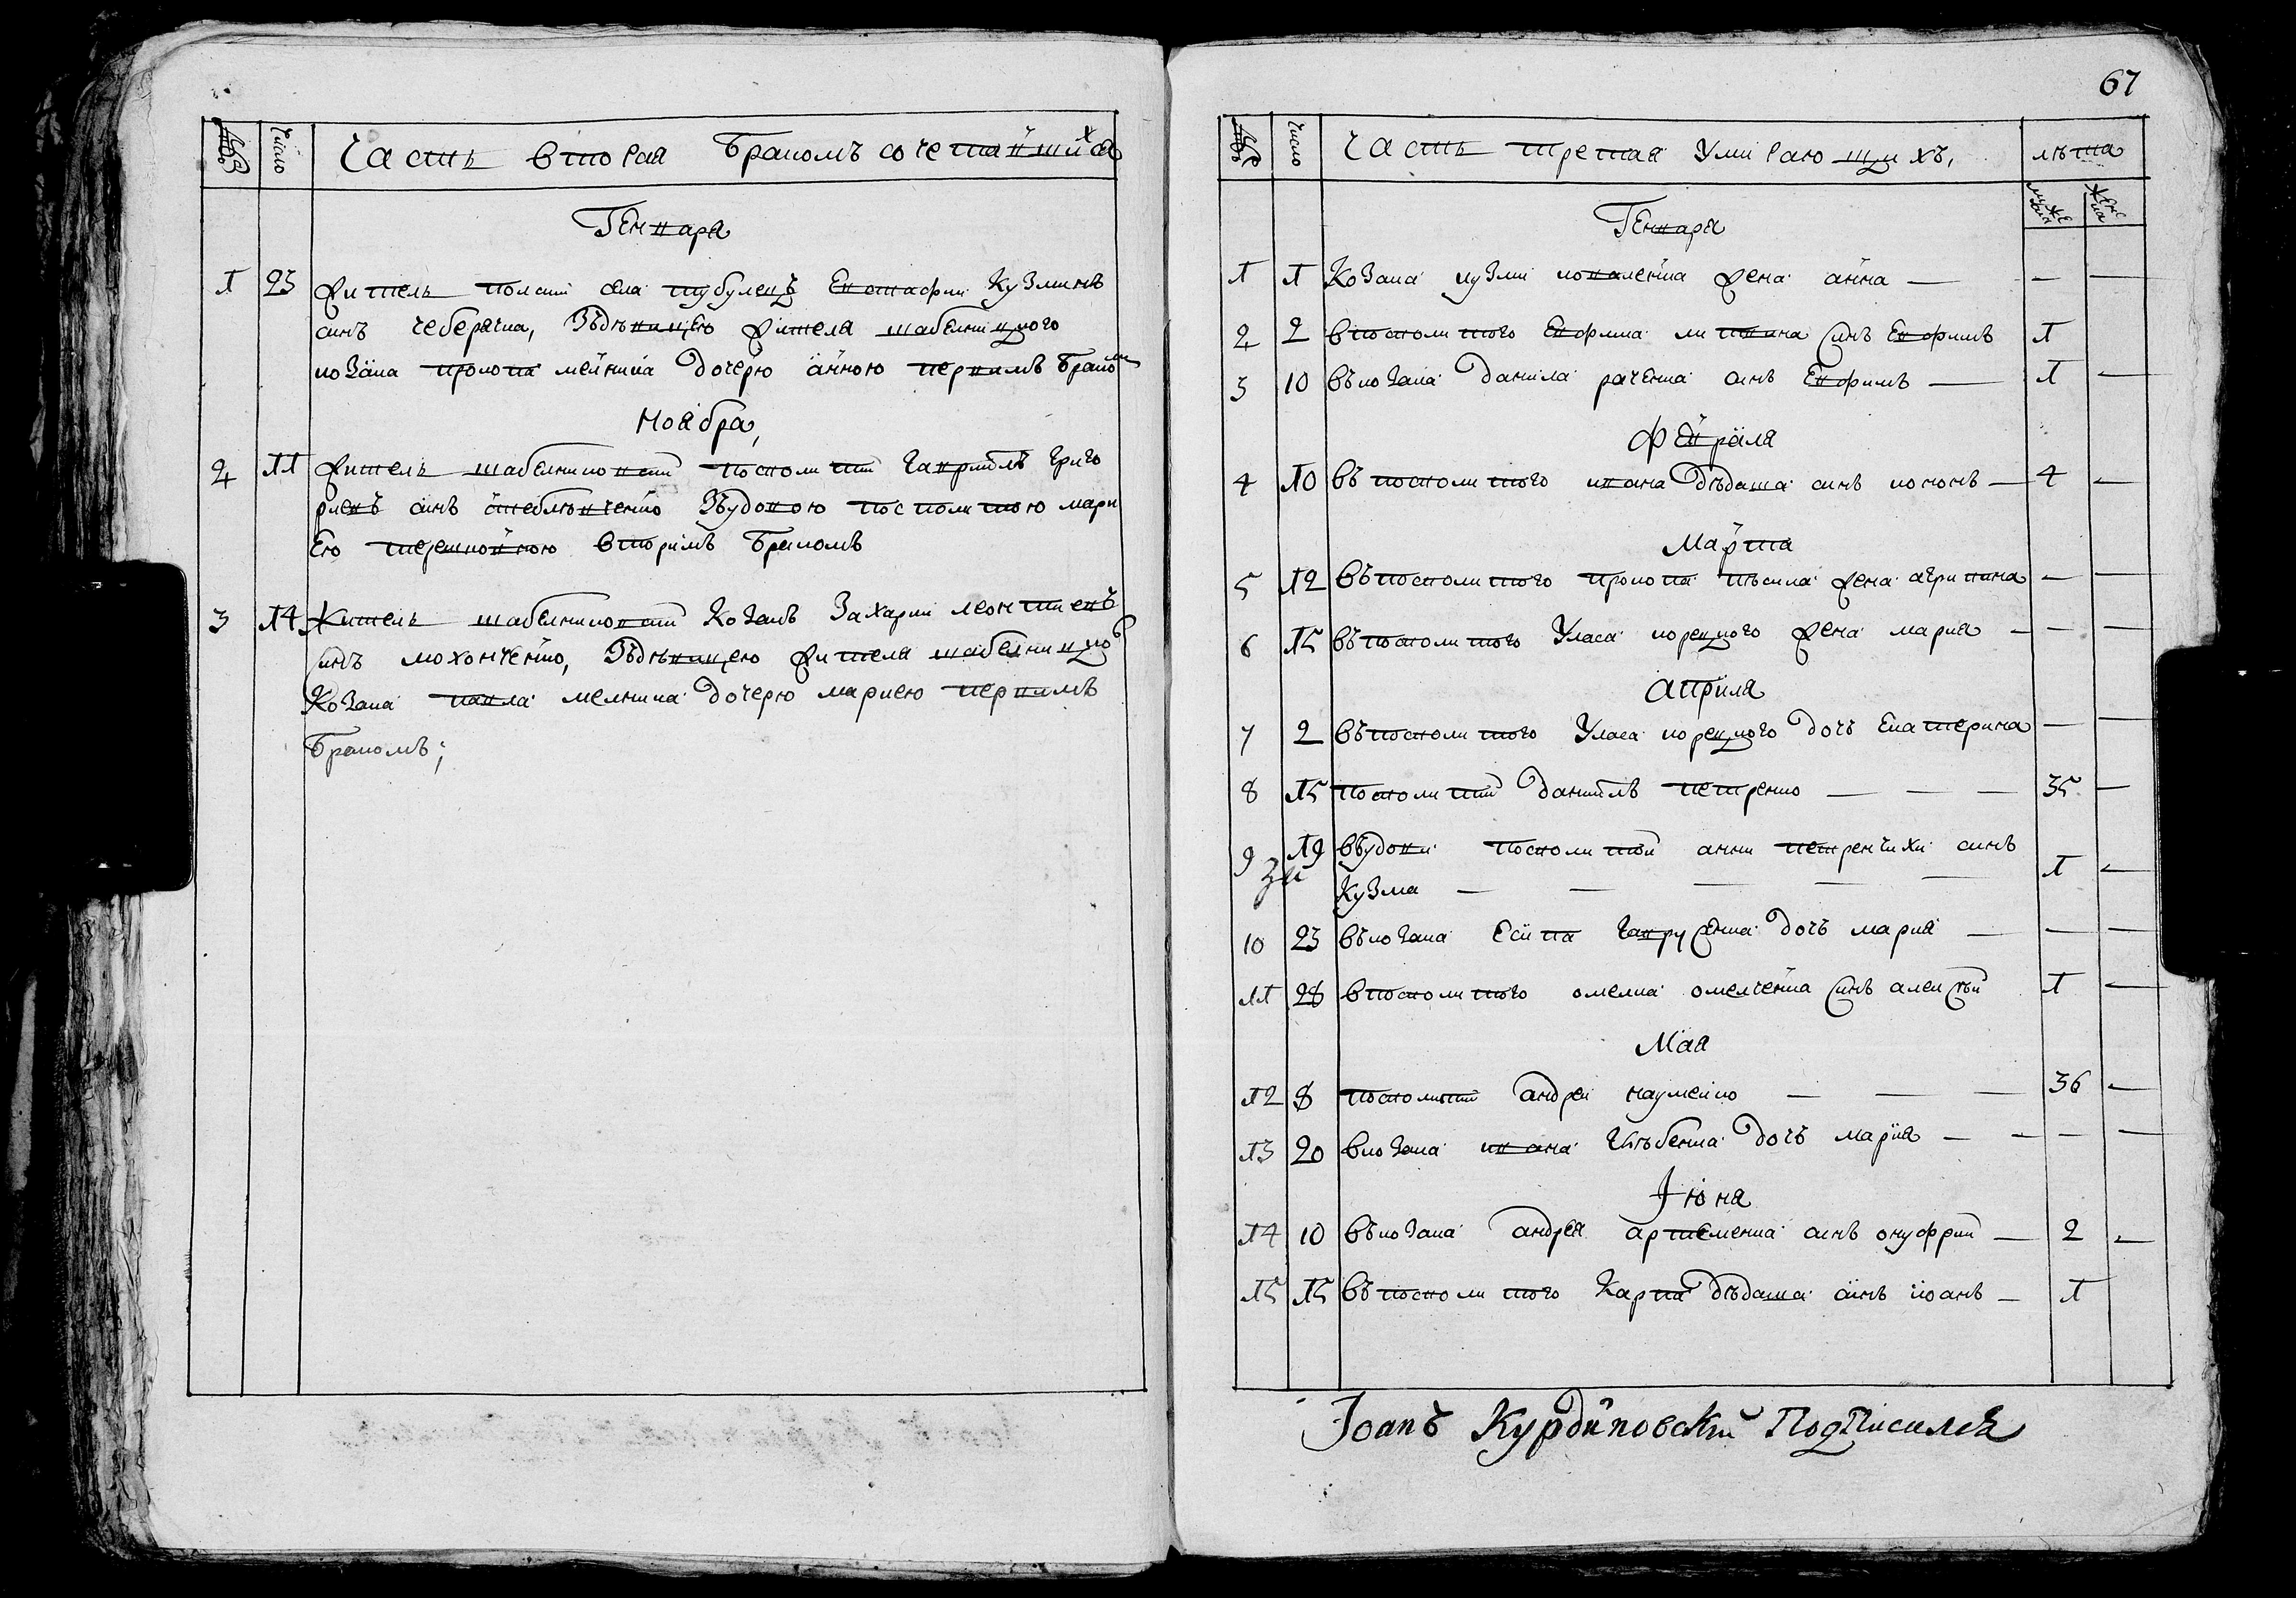 число
Часть вторая Браком сочетавшихся
Генваря
1 23 житель полский села трубулевъ Евстафий Кузминъ
синъ чеберячка, Зъдѣвицею жителя шабелницкого
козака прокопа мелника дочерю анною первимъ Бракомъ
Ноября
2 11 житель шабелниковский посполитий гавриилъ григо
риевъ синъ стеблювченко Зъудовою посполитою мари
Ею первимъ
вторимъ Бракомъ
3 14 Житель шабелниковский Козакъ Захарий леонтиевъ
синъ мохонченко, Зъдѣвицею жителя шабелницкого
Козака павла мелника дочерю мариею первимъ
Бракомъ;
67
число
Часть третая Умирающихъ, лѣта
мужеска женска
Генваря
1 1 Козака кузми коваленка жена анна — — —
2 2 в посполитого Евфима литвина синъ Евфимъ 1
3 10 въ козака данила раченка синъ Евфимъ — 1 —
Февраля
4 10 въ посполитого ивана дѣдаша синъ конъонъ — 4 —
Марта
5 12 въ посполитого прокопа пѣсика жена агрипина — —
6 15 въ посполитого Уласа корецкого жена мария — — —
априля
7 2 въ посполитого Уласа корецкого дочъ Екатерина — —
8 15 посполитий даниилъ петренко — — — 35 —
9 19 въ удови посполитой анни петренчихи синъ
Кузма — — — — — 1 —
10 23 въ козака Есипа гаврусенка дочъ мария — — —
11 28 в посполитого омелка омелченка синъ алексѣй 1 —
Мая
12 8 посполитий андрей науменко — — — 36 —
13 20 в козака ивана глѣбенка дочъ мария — — — —
Июня
14 10 въ козака андрея артеменка синъ онуфрий — 2 —
15 15 въ посполитого Карпа дѣдаша синъ иоанъ — 1
Іоанъ Курдиновский Подписался